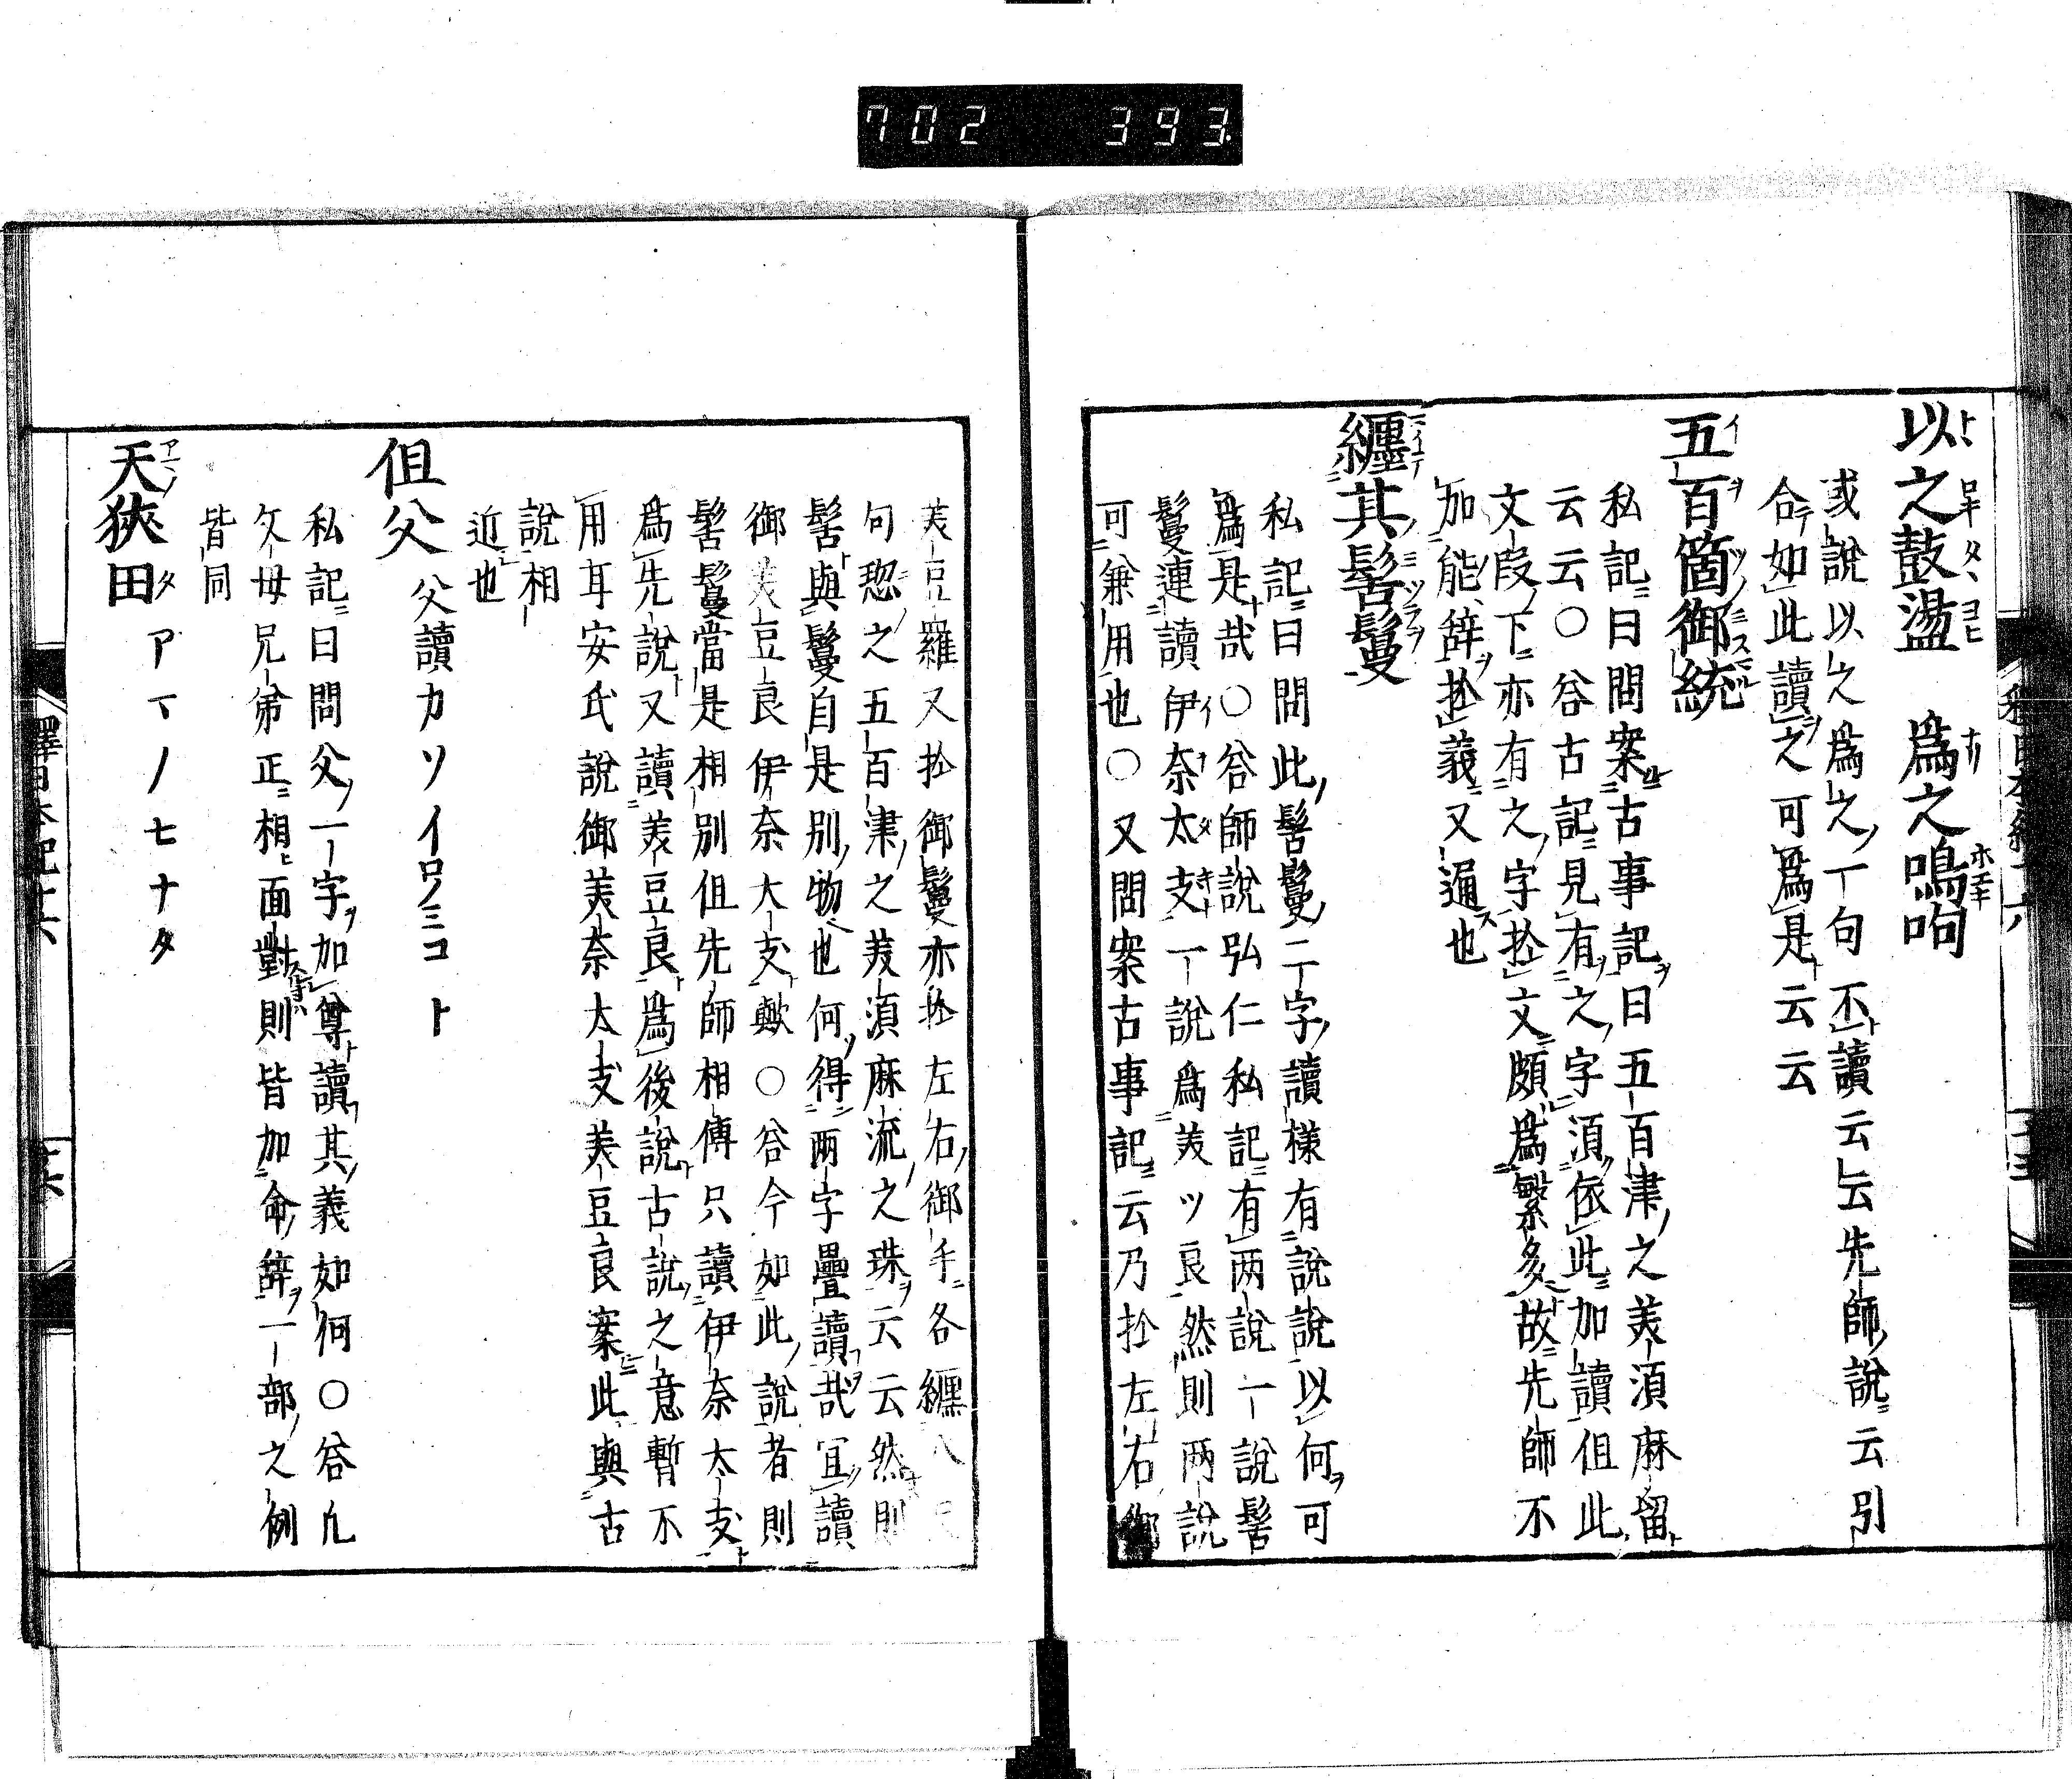 702 393
以之鼓盪 爲之鳴呴
或說以之爲之一句不讀云云先師說云引
合如此讀之可爲是云云
五百箇御統
私記曰問案古事記曰五百津之美湏麻留
云云〇答古記見有之字湏依此加讀但此
文段下亦有之字於文頗爲繁多故先師不
加能辞於義又通也
纏其髻鬘
私記曰問此髻鬘二字讀様有說說以何可
爲是哉〇答師說弘仁私記有两說一說髻
鬘連讀伊奈太支一說爲美ツ良然則两說
可兼用也〇又問案古事記云乃於左右御
美豆羅又於御鬘亦於左右御手各纒八尺
句惣之五百津之美湏麻流之珠云云然則
髻與鬘自是別物也何得两字疊讀哉宜讀
御美豆良伊奈大支歟〇答今如此說者則
髻鬘當是相別但先師相傳只讀伊奈太支
爲先說又讀美豆良爲後說古說之意暫不
用耳安氏說御美奈太支美豆良案此與古
說相
近也
但父 父讀カソイロノミコト
私記曰問父一字加尊讀其義如何〇答凡
父母兄弟正相面對則皆加命辞一部之例
皆同
天狹田 アマノセナタ
釋日本紀十六